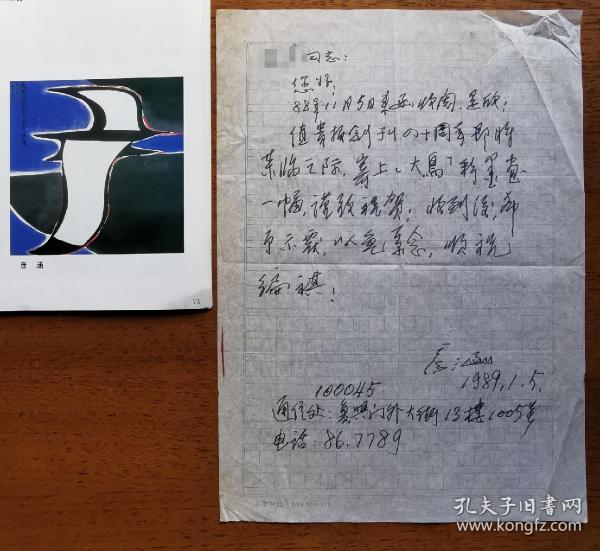 彦 涵
73
同志：
您好！
88年11月5日来函收阅，是欣！
值贵报创刊四十周年即将
来临之际，寄上《大鳥》彩墨画
一幅，谨致祝贺！收到后，都
示覆，以免系念，顺祝
编祺！
彦涵
1989.1.5.
100045
通信处：复兴门外大街13楼1005号
电话：86.7789
孔夫子旧书网
www.kongfz.com